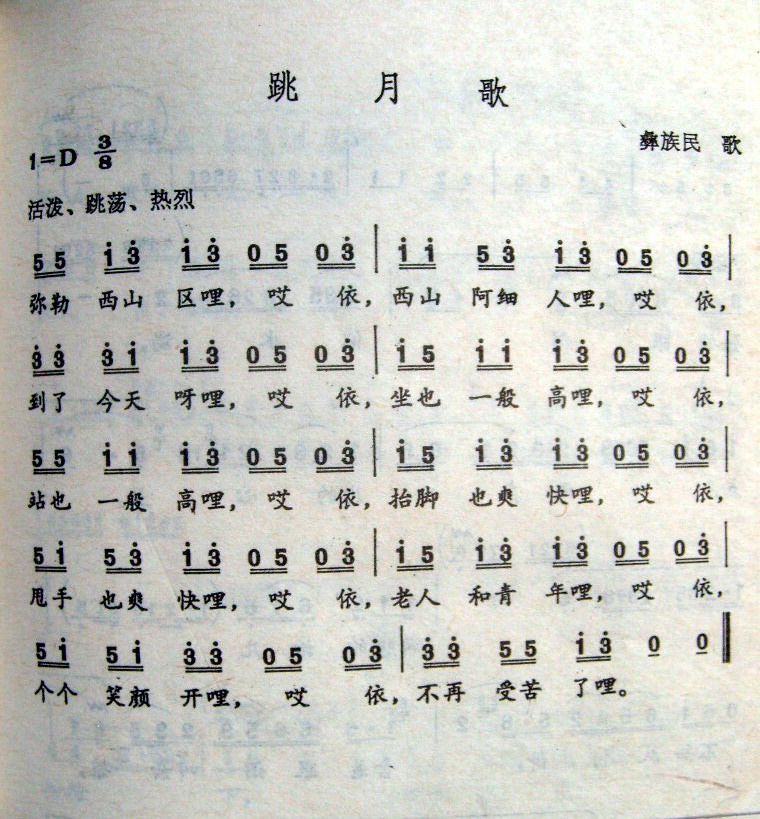 跳 月 歌
彝族民 歌
1=D 3/8
活泼、跳荡、热烈
5 5 i̇ 3̇ i̇ 3̇ 0 5 0 3̇ | i̇ i̇ 5 3̇ i̇ 3̇ 0 5 0 3̇ |
弥勒 西山 区哩, 哎 依, 西山 阿细 人哩, 哎 依,
3̇ 3̇ 3̇ i̇ i̇ 3̇ 0 5 0 3̇ | i̇ 5 i̇ i̇ i̇ 3̇ 0 5 0 3̇ |
到了 今天 呀哩, 哎 依, 坐也 一般 高哩, 哎 依,
5 5 i̇ i̇ i̇ 3̇ 0 5 0 3̇ | i̇ 5 i̇ 3̇ i̇ 3̇ 0 5 0 3̇ |
站也 一般 高哩, 哎 依, 抬脚 也爽 快哩, 哎 依,
5 i̇ 5 3̇ i̇ 3̇ 0 5 0 3̇ | i̇ 5 i̇ 3̇ i̇ 3̇ 0 5 0 3̇ |
甩手 也爽 快哩, 哎 依, 老人 和青 年哩, 哎 依,
5 i̇ 5 i̇ 3̇ 3̇ 0 5 0 3̇ | 3̇ 3̇ 5 5 i̇ 3̇ 0 0 ‖
个个 笑颜 开哩, 哎 依, 不再 受苦 了哩。